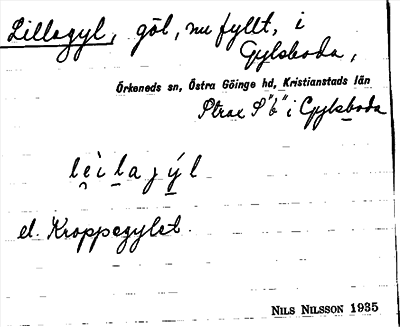 Lillagyl, göl, nu fyllt, i
Gylsboda,
Örkeneds sn, Östra Göinge hd, Kristianstads län
Strax S "b" i Gylsboda
lèi la jýl
el. Kroppagylet.
NILS NILSSON 1935